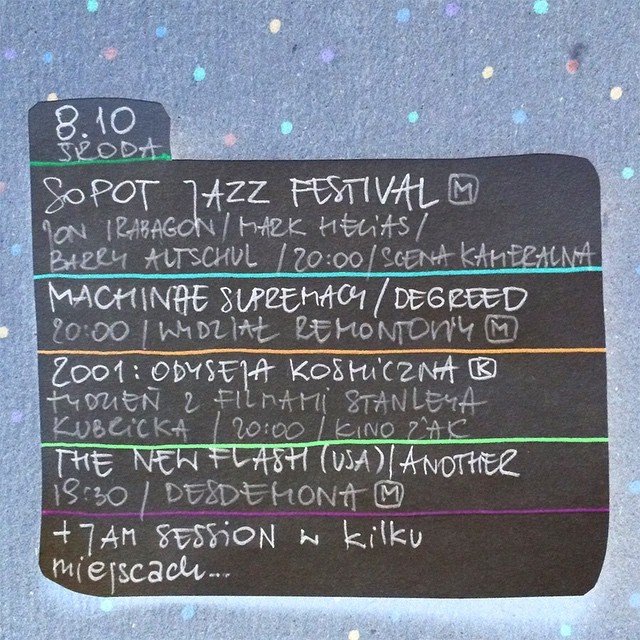 8.10
ŚRODA
SOPOT JAZZ FESTIVAL M
JON IRABAGON / MARK HELIAS /
BARRY ALTSCHUL / 20:00 / SCENA KAMERALNA
MACHINAE SUPREMACY / DEGREED
20:00 / WYDZIAŁ REMONTOWY M
2001: ODYSEJA KOSMICZNA K
TYDZIEŃ Z FILMAMI STANLEYA
KUBRICKA / 20:00 / KINO ŻAK
THE NEW FLASH (USA) / ANOTHER
19:30 / DESDEMONA M
+ JAM SESSION W KILKU
miejscach...